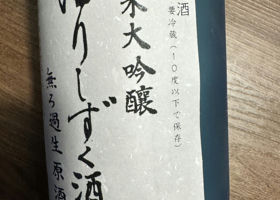 酒
要冷蔵(10度以下で保存)
米大吟醸
りしずく酒
無ろ過生原酒